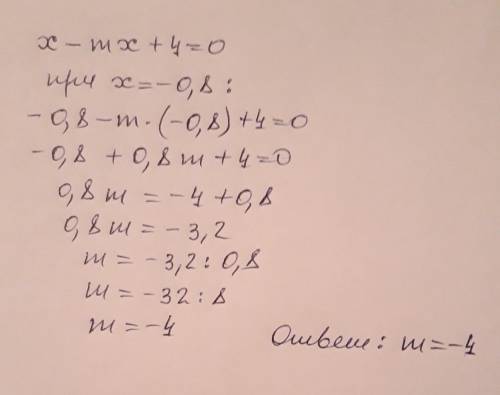 x - mx + 4 = 0
при x = -0,8 :
-0,8 - m · (-0,8) + 4 = 0
-0,8 + 0,8 m + 4 = 0
0,8 m = -4 + 0,8
0,8 m = -3,2
m = -3,2 : 0,8
m = -32 : 8
m = -4
Ответ: m = -4